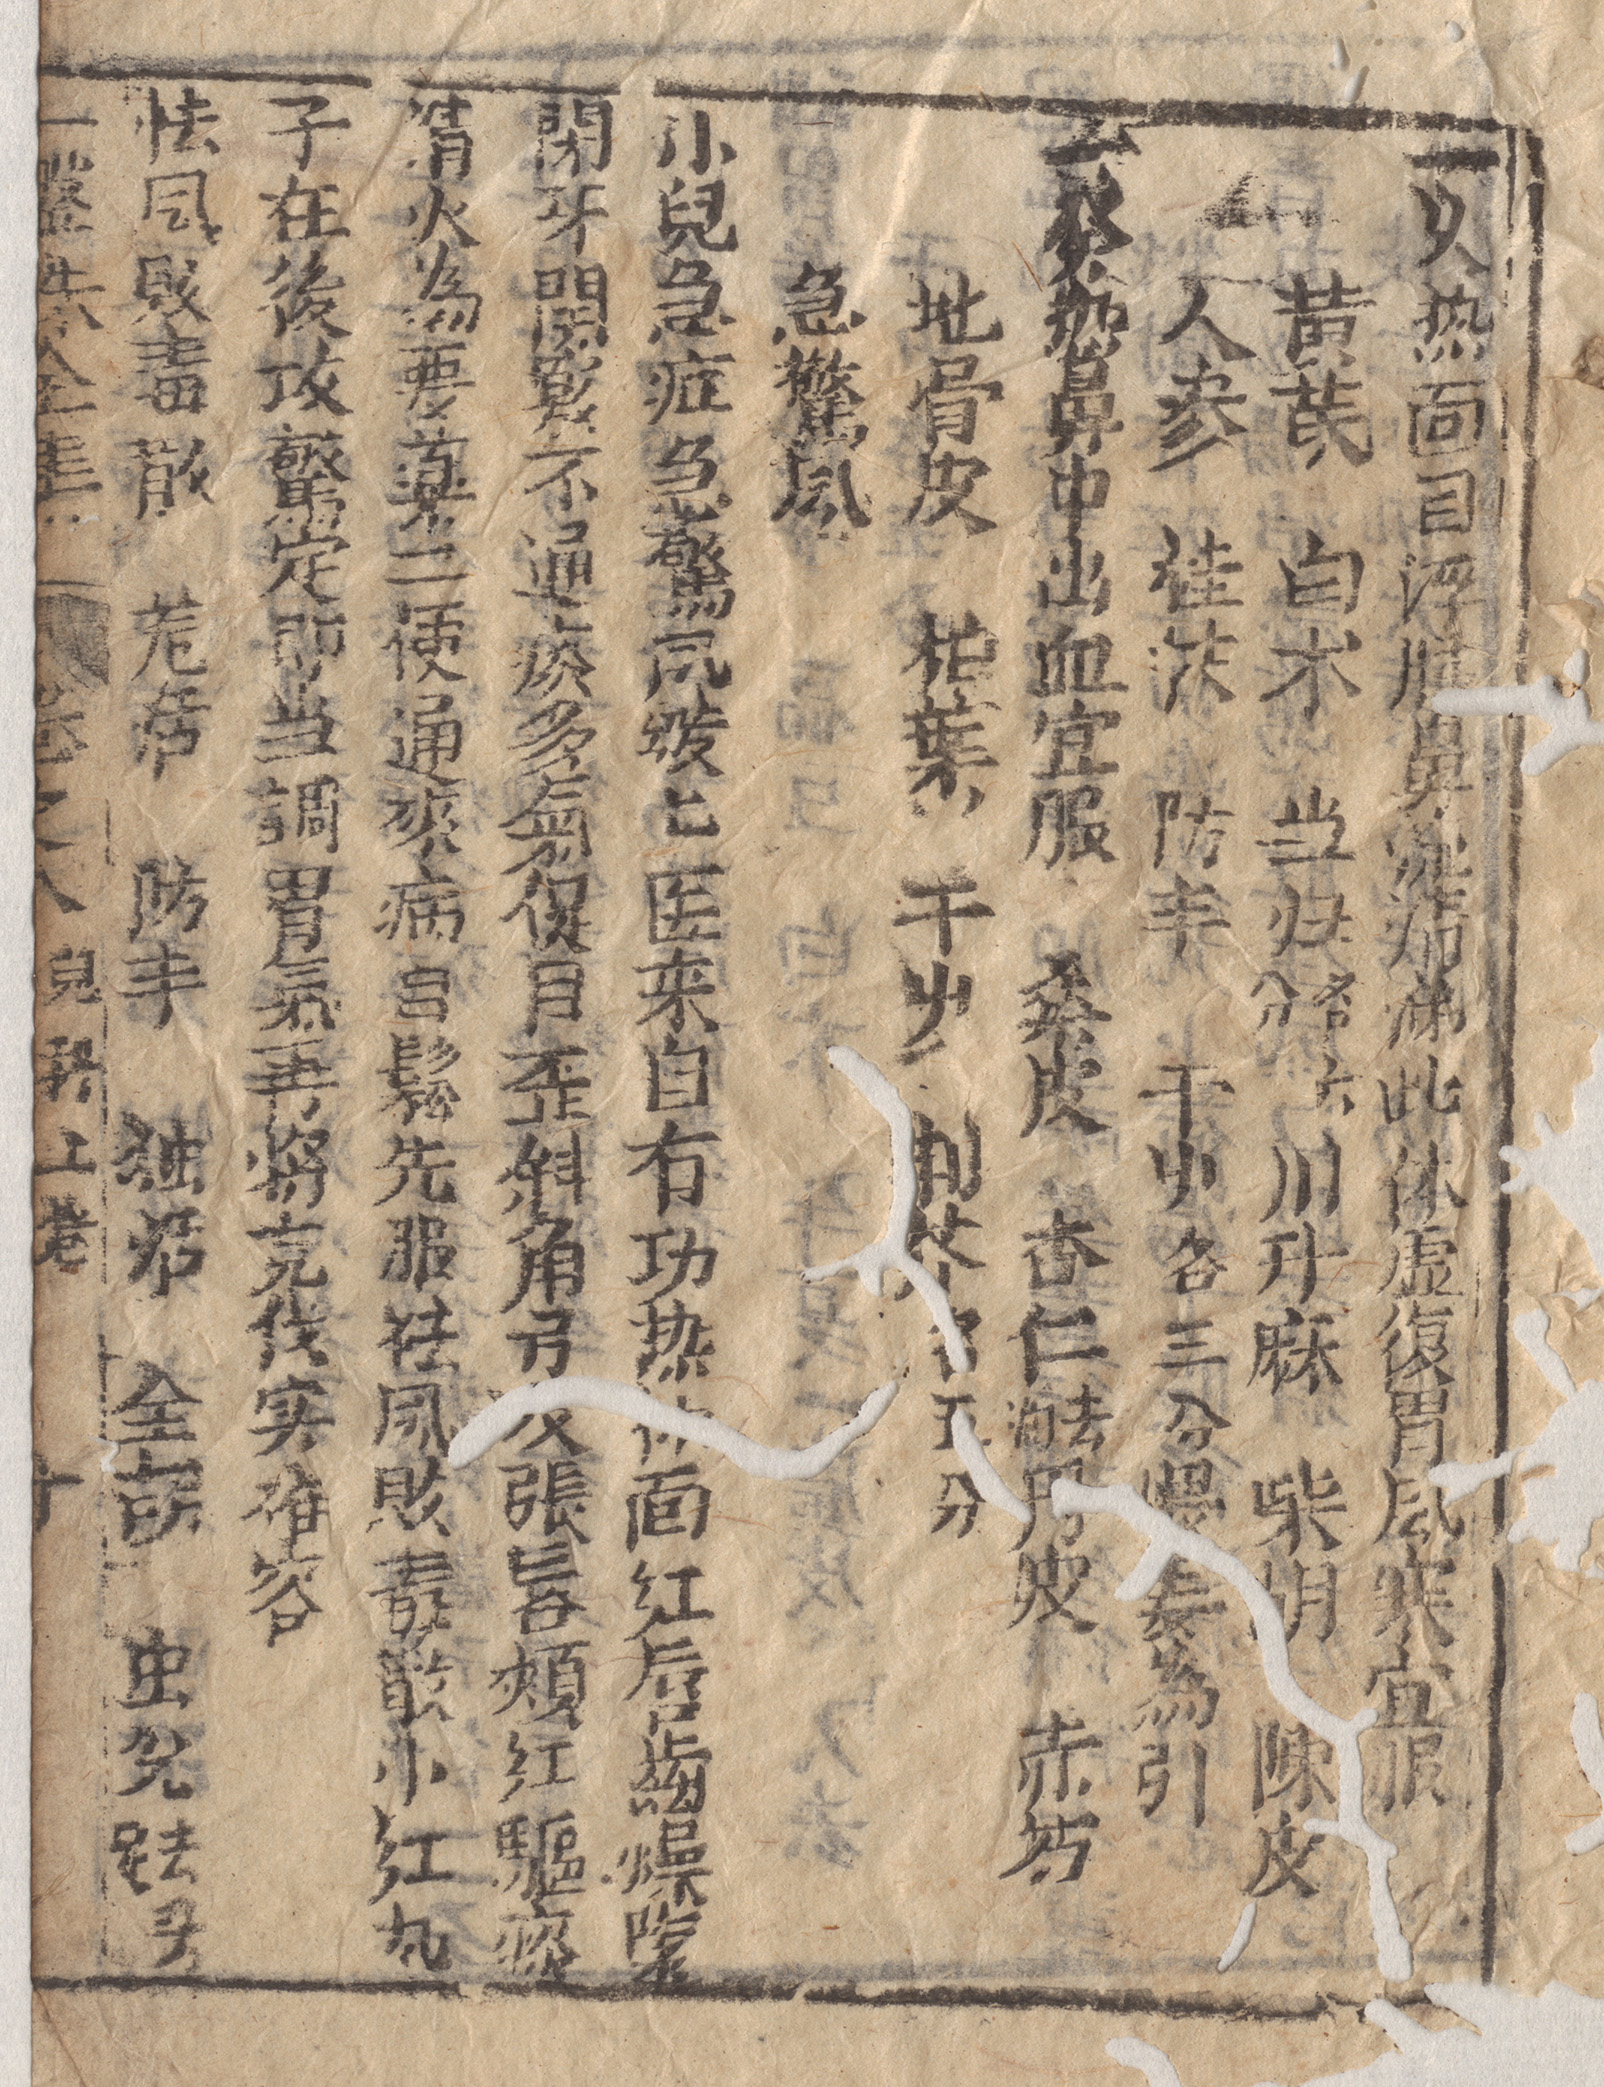 一久热面目浮腫鼻塞痞满此体虚復胃風寒宜服
黄芪 白术 当归各六分 川升麻 柴胡 陳皮
人参 桂枝 防丰 干少各三分煨姜為引
一發热鼻中出血宜服 桑皮 杏仁 法丹皮 赤芍
地骨皮 柏葉 干少 荆芥各五分
急驚風
小兒急症急驚風發亡医来自有功热体面红唇齒燥
閉牙関竅不通痰多氣促目歪斜角弓反張唇頰红驅痰
清火為要薬二便通爽病自鬆先服祛風败毒散小红丸
子在後攻驚定即当調胃氣再將克伐实难容
怯風败毒散 羌活 防丰 独活 全胡 虫兌
一盤珠全集 卷之八 兒科上卷 十